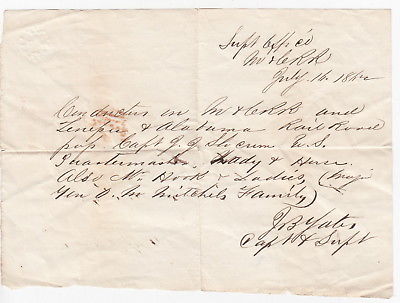 Supt Office
M & C RR
July 16 1862
Conductors on M & C RR and
Tennessee & Alabama Rail Road
pass Capt J. J. Slocum U.S.
Quartermaster Lady & Horse
Also Mr Hook & Ladies, (Majr
Gen O. M. Mitchels Family)
J B Yates
Capt & Supt